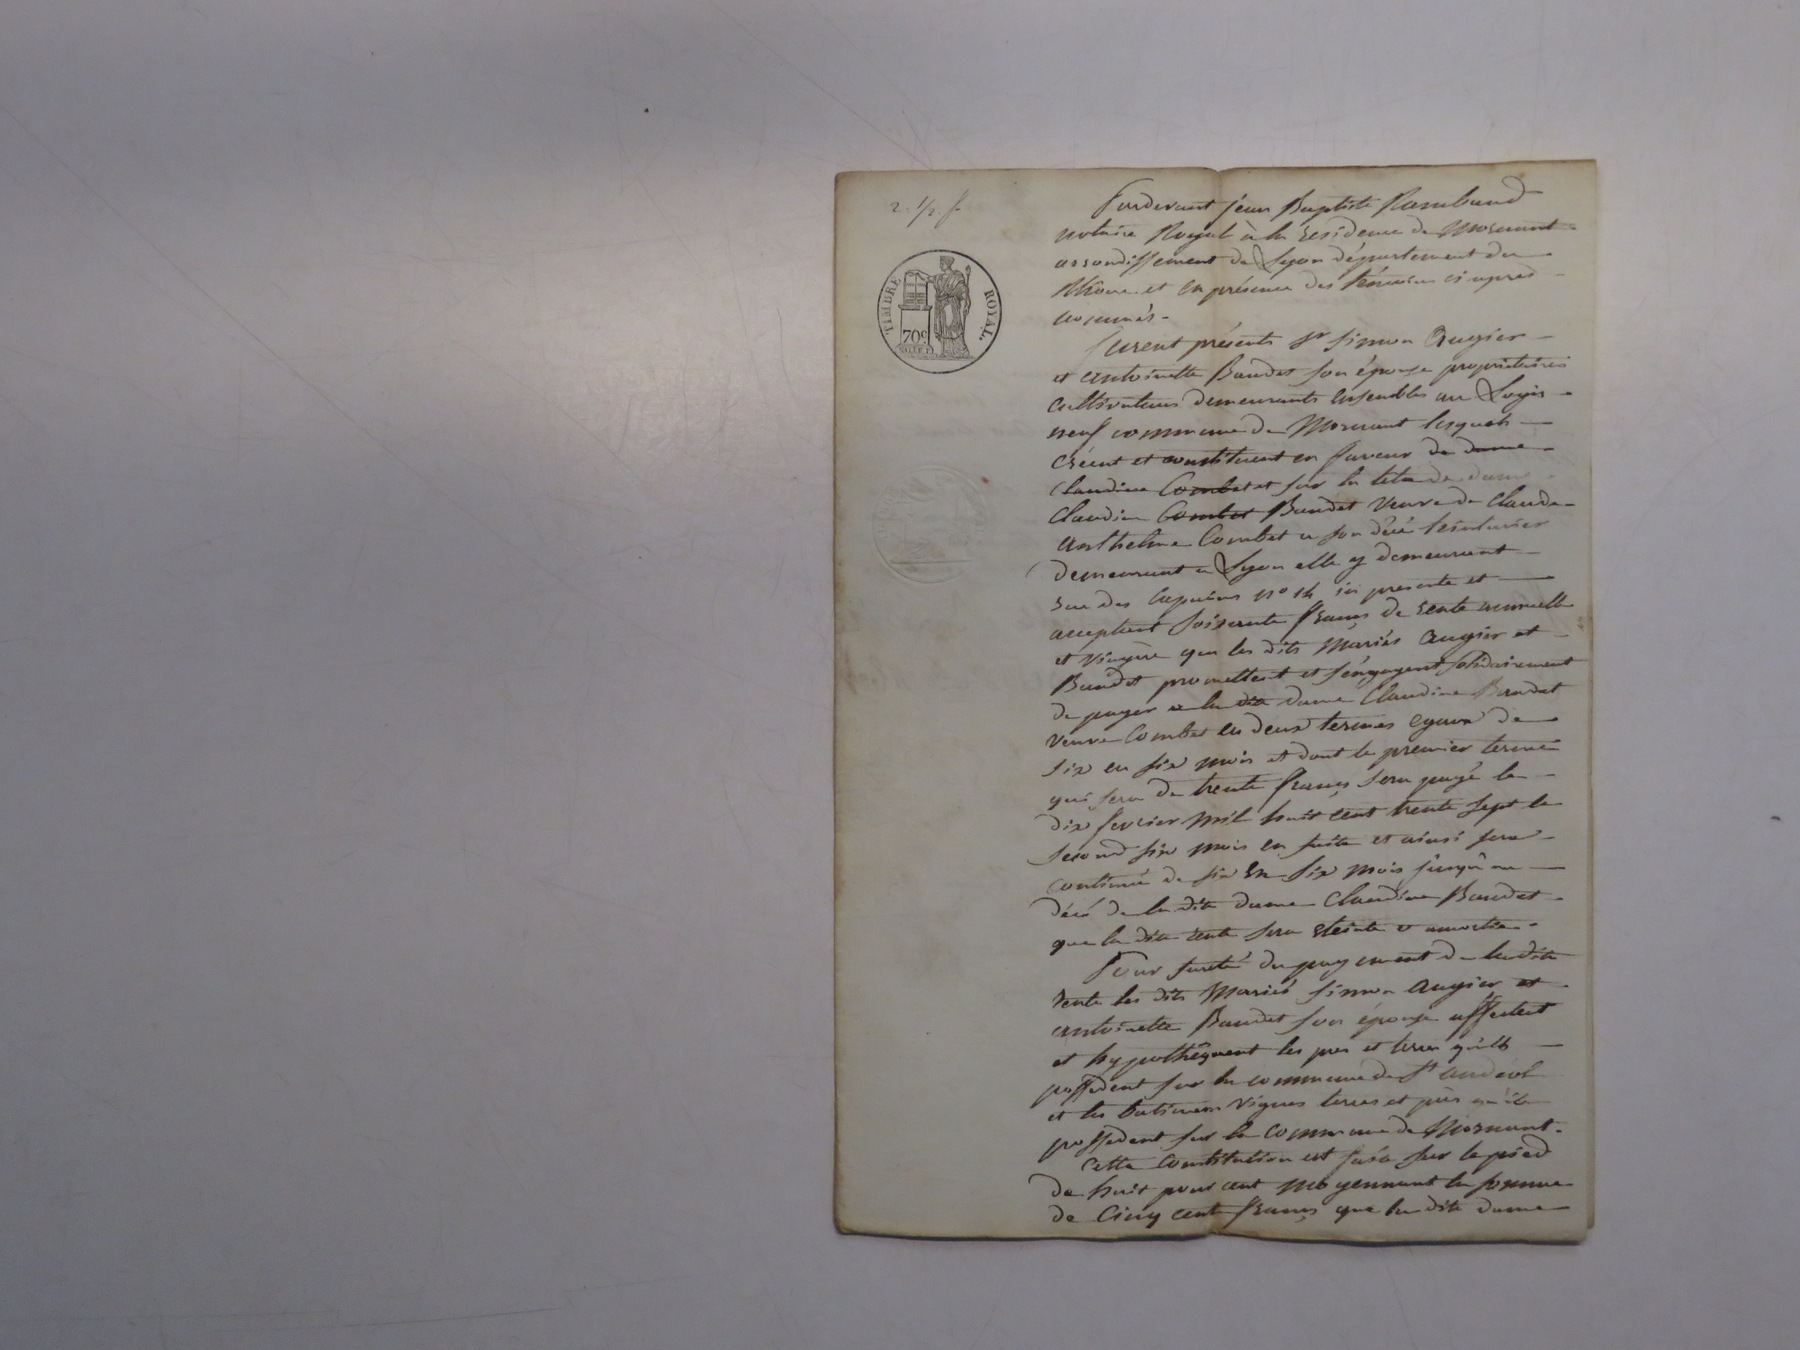 2. 1/2 f.
TIMBRE ROYAL
70c
Pardevant jean Baptiste Rambaud
notaire Royal à la résidence de Mornant
arrondissement de Lyon département du
Rhône et en présence des témoins ci après
nommés.
furent présents Sr Simon Augier
et antoinette Baudet son épouse propriétaires
cultivateurs demeurants ensembles au Logis
neuf commune de Mornant lesquels
créent et constituent en faveur de dame
Claudine Combet et sur la tête de dame
Claudine Combet Baudet veuve de Claude
anthelme Combet a son décé teinturier
demeurant a Lyon elle y demeurant
rue des Capucins no 14 ici présente et
acceptant soixante francs de rente annuelle
et viagère que les dits Mariés augier et
Baudet promettent et s'engagent solidairement
de payer a la dite dame Claudine Baudet
veuve Combet en deux termes egaux de
six en six mois et dont le premier terme
qui sera de trente francs sera payé le
dix fevrier mil huit cent trente sept le
second six mois en suite et ainsi sera
continué de six en six mois jusqu'au
décé de la dite dame Claudine Baudet
que la dite rente sera éteinte et amortie.
Pour sureté du payement de la dite
rente les dits Mariés Simon augier et
antoinette Baudet son épouse affectent
et hypothèquent les prés et terres qu'ils
possedent sur la commune de St andéol
et les batimens vignes terres et prés qu'ils
possedent sur la commune de Mornant.
Cette Constitution est faite sur le pied
de huit pour cent moyennant la somme
de Cinq cent francs que la dite dame